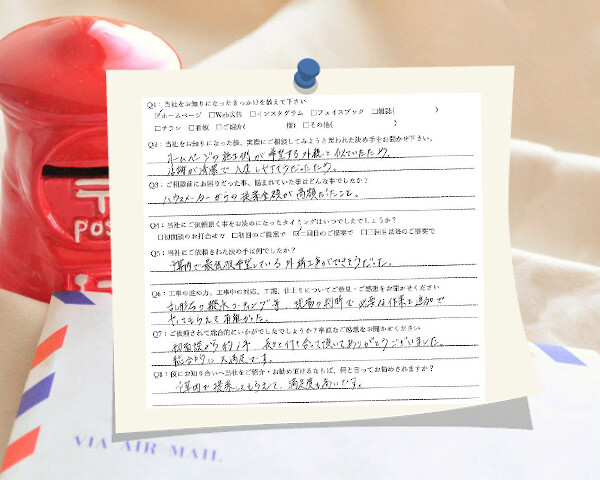 〒
POS
VIA AIR MAIL
Q1：当社をお知りになったきっかけを教えて下さい
☑ホームページ □Web広告 □インスタグラム □フェイスブック □雑誌( )
□チラシ □看板 □ご紹介( 様) □その他( )
Q2：当社をお知りになった後、実際にご相談してみようと思われた決め手をお聞かせ下さい。
ホームページの施工例が希望する外観と似ていたため。
店舗が清潔で入店しやすそうだったため。
Q3：ご相談前にお困りだった事、悩まれていた事はどんな事でしたか？
ハウスメーカーからの提案金額が高額だったこと。
Q4：当社にご依頼頂く事をお決めになったタイミングはいつでしたでしょうか？
□初回面談のお打合せで □初回のご提案で ☑二回目のご提案で □三回目以降のご提案で
Q5：当社にご依頼された決め手は何でしたか？
予算内で最低限希望している外構工事ができそうだった。
Q6：工事の進め方、工事中の対応、工期、仕上りについてご意見・ご感想をお聞かせください
乱形石の撥水コーティング等、現場の判断で必要な作業を追加で
やってもらえて有難かった。
Q7：ご依頼されて総合的にいかがでしたでしょうか？率直なご感想をお聞かせください
初回面談から約1年、長々と付き合って頂いてありがとうございました。
総合的に大満足です。
Q8：仮にお知り合いへ当社をご紹介・お勧め頂けるならば、何と言ってお勧めされますか？
予算内で提案してもらえて、満足度も高いです。